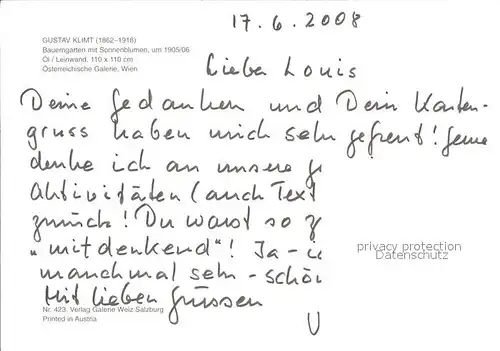 17.6.2008
GUSTAV KLIMT (1862–1918)
Bauerngarten mit Sonnenblumen, um 1905/06
Öl / Leinwand, 110 x 110 cm
Österreichische Galerie, Wien
Lieber Louis
Deine Gedanken und Dein Karten-
gruss haben mich sehr gefreut! Gerne
denke ich an unsere g
Aktivitäten (auch Text
zurück! Du warst so z
„mitdenkend"! Ja – i
manchmal sehr – schö
Mit lieben Grüssen
privacy protection
Datenschutz
Nr. 423. Verlag Galerie Welz Salzburg
Printed in Austria